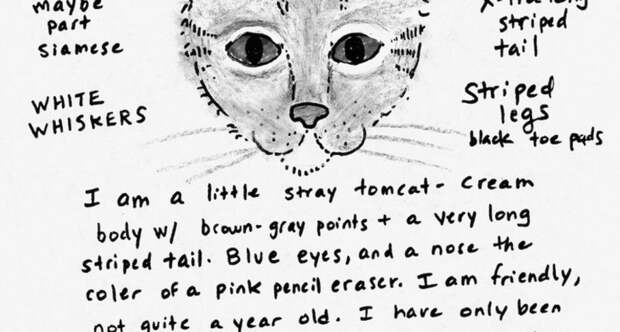 maybe
part
siamese
WHITE
WHISKERS
striped
tail
Striped
legs
black toe pads
I am a little stray tomcat - cream
body w/ brown-gray points + a very long
striped tail. Blue eyes, and a nose the
coler of a pink pencil eraser. I am friendly,
not quite a year old. I have only been